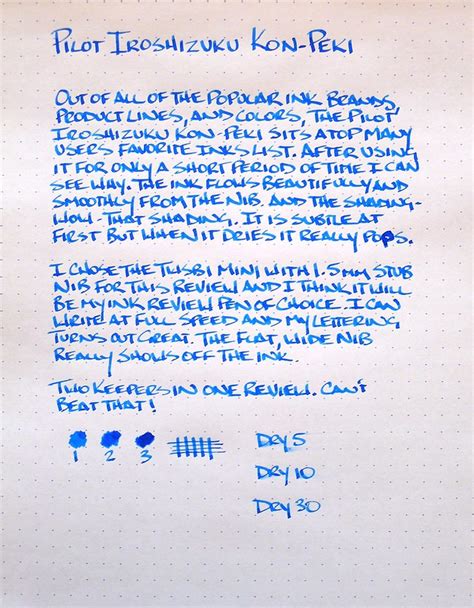 Pilot Iroshizuku Kon-Peki
Out of all of the popular ink brands,
product lines, and colors, the Pilot
Iroshizuku Kon-Peki sits atop many
users favorite inks list. After using
it for only a short period of time I can
see why. The ink flows beautifully and
smoothly from the nib. And the shading-
wow-that shading. It is subtle at
first but when it dries it really pops.
I chose the TWSBI Mini with 1.5mm stub
nib for this review and I think it will
be my ink review pen of choice. I can
write at full speed and my lettering
turns out great. The flat, wide nib
really shows off the ink.
Two keepers in one review. Can't
beat that!
1 2 3
Dry 5
Dry 10
Dry 30